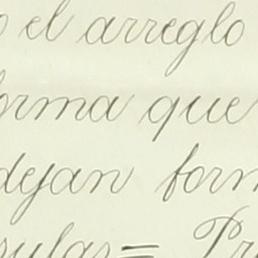 o el arreglo
orma que
dejan form
sulas= Pr